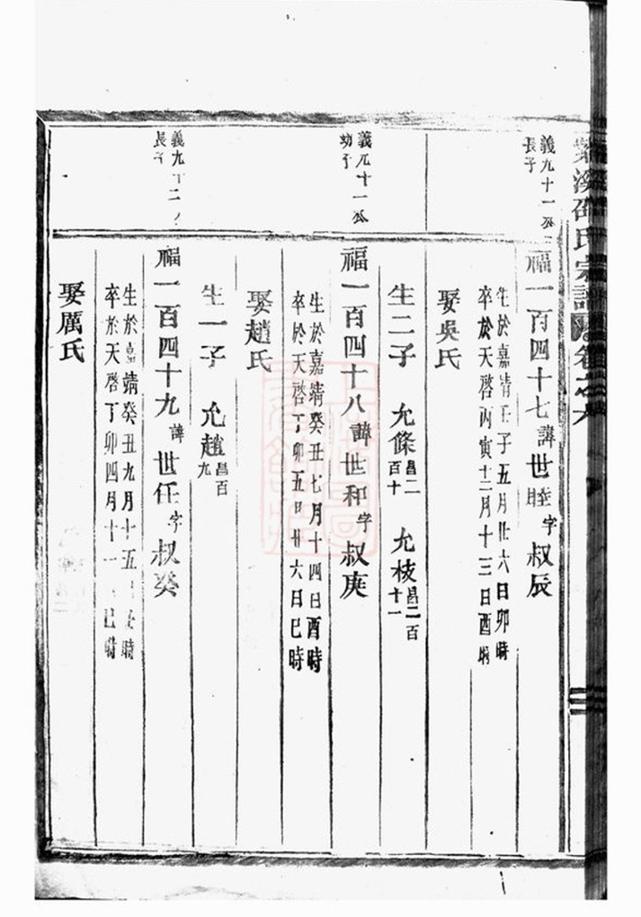 溪邵氏宗譜 卷之六
義九十一公
長子
福一百四十七諱世睦字叔辰
生於嘉靖壬子五月廿六日卯時
卒於天啓丙寅十二月十三日酉時
娶吳氏
生二子 允條昌二百十 允枝昌二百十一
義九十一公
幼子
福一百四十八諱世和字叔庚
生於嘉靖癸丑七月十四日酉時
卒於天啓丁卯五月廿六日巳時
娶趙氏
生一子 允趙昌百九
義九十二
長子
福一百四十九諱世任字叔癸
生於嘉靖癸丑九月十五 時
卒於天啓丁卯四月十一 巳時
娶厲氏